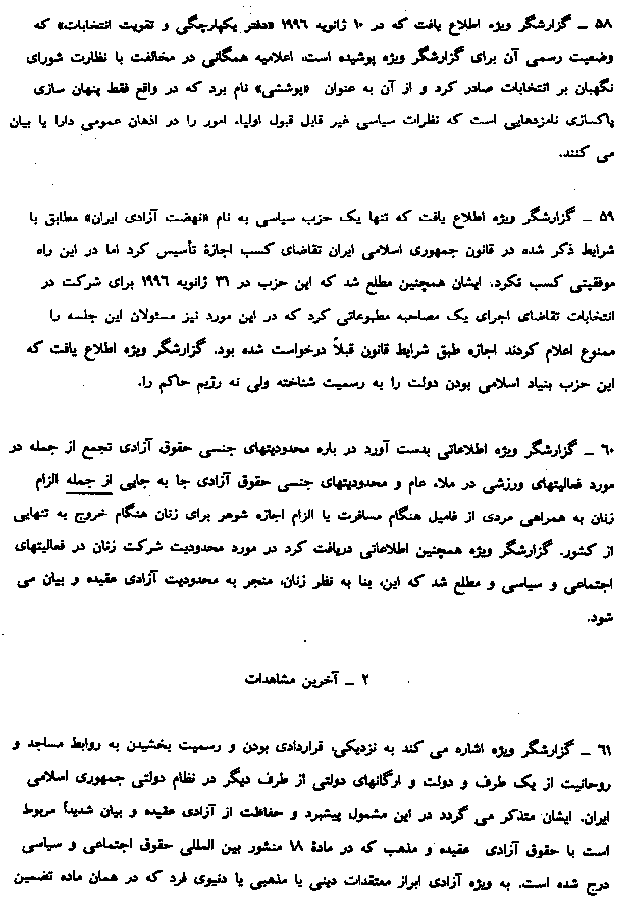 ۵۸ ـ گزارشگر ویژه اطلاع یافت که در ۱۰ ژانویه ۱۹۹۶ «دفتر یکپارچگی و تقویت انتخابات» که
وضعیت رسمی آن برای گزارشگر ویژه پوشیده است، اعلامیه همگانی در مخالفت با نظارت شورای
نگهبان بر انتخابات صادر کرد و از آن به عنوان «پوششی» نام برد که در واقع فقط پنهان سازی
پاکسازی نامزدهایی است که نظرات سیاسی غیر قابل قبول اولیاء امور را در اذهان عمومی دارا یا بیان
می کنند.
۵۹ ـ گزارشگر ویژه اطلاع یافت که تنها یک حزب سیاسی به نام «نهضت آزادی ایران» مطابق با
شرایط ذکر شده در قانون جمهوری اسلامی ایران تقاضای کسب اجازۀ تأسیس کرد اما در این راه
موفقیتی کسب نکرد. ایشان همچنین مطلع شد که این حزب در ۳۱ ژانویه ۱۹۹۶ برای شرکت در
انتخابات تقاضای اجرای یک مصاحبه مطبوعاتی کرد که در این مورد نیز مسئولان این جلسه را
ممنوع اعلام کردند اجازه طبق شرایط قانون قبلاً درخواست شده بود. گزارشگر ویژه اطلاع یافت که
این حزب بنیاد اسلامی بودن دولت را به رسمیت شناخته ولی نه رژیم حاکم را.
۶۰ ـ گزارشگر ویژه اطلاعاتی بدست آورد در باره محدودیتهای جنسی حقوق آزادی تجمع از جمله در
مورد فعالیتهای ورزشی در ملاء عام و محدودیتهای جنسی حقوق آزادی جا به جایی از جمله الزام
زنان به همراهی مردی از فامیل هنگام مسافرت یا الزام اجازه شوهر برای زنان هنگام خروج به تنهایی
از کشور. گزارشگر ویژه همچنین اطلاعاتی دریافت کرد در مورد محدودیت شرکت زنان در فعالیتهای
اجتماعی و سیاسی و مطلع شد که این، بنا به نظر زنان، منجر به محدودیت آزادی عقیده و بیان می
شود.
۲ ـ آخرین مشاهدات
۶۱ ـ گزارشگر ویژه اشاره می کند به نزدیکی، قراردادی بودن و رسمیت بخشیدن به روابط مساجد و
روحانیت از یک طرف و دولت و ارگانهای دولتی از طرف دیگر در نظام دولتی جمهوری اسلامی
ایران. ایشان متذکر می گردد در این مشمول پیشبرد و حفاظت از آزادی عقیده و بیان شدیداً مربوط
است با حقوق آزادی عقیده و مذهب که در مادۀ ۱۸ منشور بین المللی حقوق اجتماعی و سیاسی
درج شده است. به ویژه آزادی ابراز معتقدات دینی یا مذهبی یا دنیوی فرد که در همان ماده تضمین